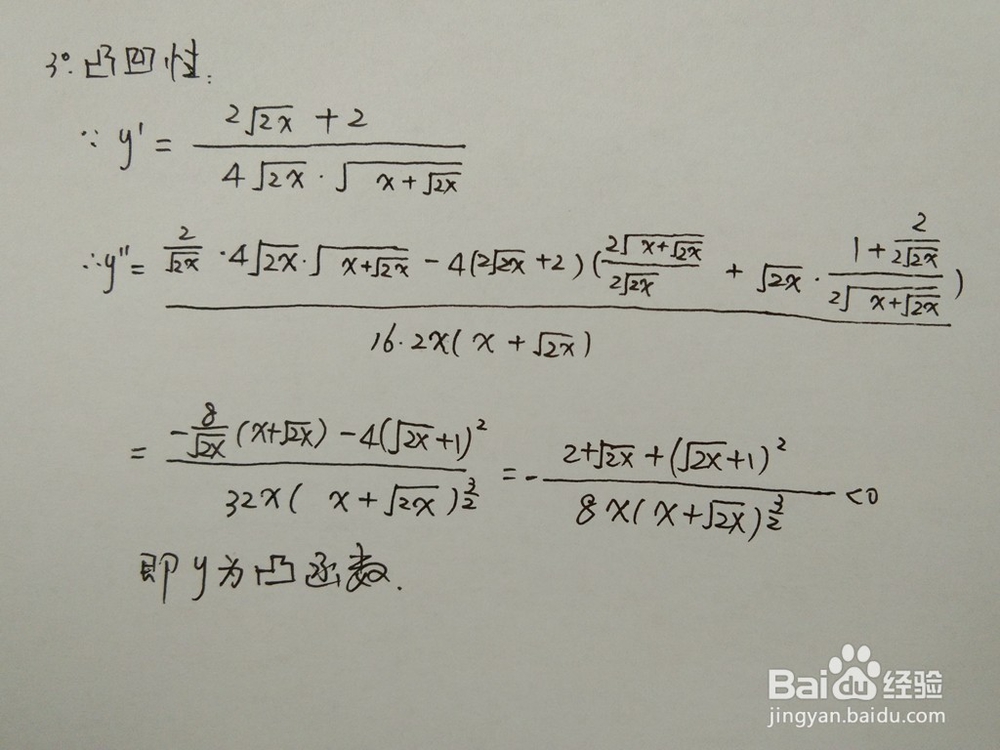 3°. 凸凹性:
∵ y' = (2√(2x) + 2) / (4√(2x) · √(x+√(2x)))
∴ y" = [2/√(2x) · 4√(2x) · √(x+√(2x)) − 4(2√(2x)+2)(2√(x+√(2x)) / (2√(2x)) + √(2x) · (1 + 2/(2√(2x))) / (2√(x+√(2x))))] / (16·2x(x+√(2x)))
= [−8/√(2x) (x+√(2x)) − 4(√(2x)+1)²] / (32x(x+√(2x))^(3/2)) = − [2+√(2x)+(√(2x)+1)²] / (8x(x+√(2x))^(3/2)) <0
即 y 为凸函数.
Baidu 经验
jingyan.baidu.com